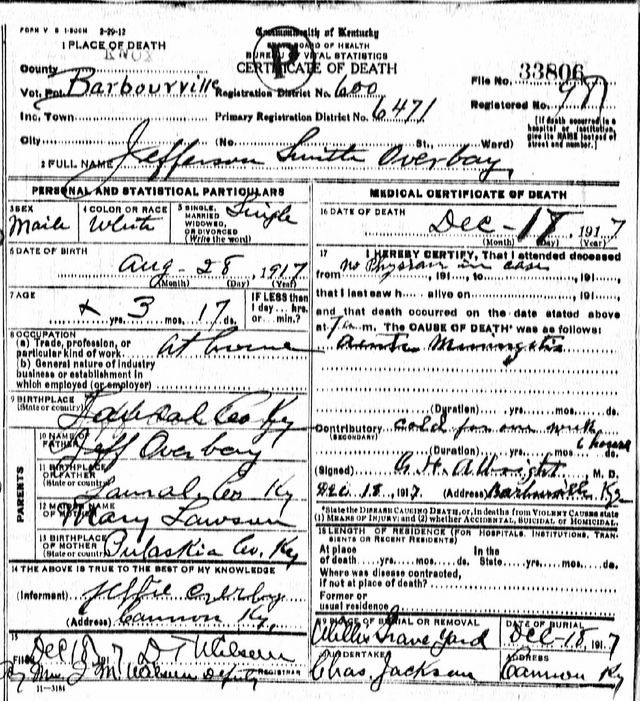 FORM V S 1-500M 2-29-12
Commonwealth of Kentucky
STATE BOARD OF HEALTH
BUREAU OF VITAL STATISTICS
CERTIFICATE OF DEATH
P
1 PLACE OF DEATH
County KNOX
Vot. Pct. Barbourville
Inc. Town
City
Registration District No. 600
Primary Registration District No. 6471
(No. St., Ward)
File No. 33806
Registered No. 97
[If death occurred in a hospital or institution, give its NAME instead of street and number.]
2 FULL NAME Jefferson Smith Overbay
PERSONAL AND STATISTICAL PARTICULARS
3 SEX Maile
4 COLOR OR RACE White
5 SINGLE, MARRIED WIDOWED, OR DIVORCED (Write the word) Single
6 DATE OF BIRTH
Aug - 28, 1917
(Month) (Day) (Year)
7 AGE
x yrs. 3 mos. 17 ds.
IF LESS than 1 day ... hrs. or ... min.?
8 OCCUPATION
(a) Trade, profession, or particular kind of work. at home
(b) General nature of industry business or establishment in which employed (or employer)
9 BIRTHPLACE (State or country) Co Ky
PARENTS
10 NAME OF FATHER Jeff Overbay
11 BIRTHPLACE OF FATHER (State or country) Laural Co Ky
12 MAIDEN NAME OF MOTHER Mary Lawson
13 BIRTHPLACE OF MOTHER (State or country) Pulaskia Co. Ky
14 THE ABOVE IS TRUE TO THE BEST OF MY KNOWLEDGE
(Informant) Overbay
(Address) Cannon Ky.
15
Filed Dec 18, 1917 D T Wilson
By Mrs J M Wilson Deputy REGISTRAR
11-3184
MEDICAL CERTIFICATE OF DEATH
16 DATE OF DEATH
Dec - 18, 1917
(Month) (Day) (Year)
17 I HEREBY CERTIFY, That I attended deceased
from no Physian in case, 191, to, 191,
that I last saw h alive on, 191,
and that death occurred on the date stated above
at m. The CAUSE OF DEATH* was as follows:
(Duration) yrs. mos. ds.
Contributory (SECONDARY) cold for one week
6 hours
(Duration) yrs. mos. ds.
(Signed) G. H. Albright, M. D.
Dec 18, 1917 (Address) Barbourville Ky
*State the DISEASE CAUSING DEATH, or, in deaths from VIOLENT CAUSES state (1) MEANS OF INJURY; and (2) whether ACCIDENTAL, SUICIDAL or HOMICIDAL.
18 LENGTH OF RESIDENCE (FOR HOSPITALS, INSTITUTIONS, TRANSIENTS OR RECENT RESIDENTS)
At place of death yrs. mos. ds. In the State yrs. mos. ds.
Where was disease contracted, if not at place of death?
Former or usual residence
19 PLACE OF BURIAL OR REMOVAL Grave Yard
DATE OF BURIAL Dec - 18, 1917
20 UNDERTAKER Chas. Jackson
ADDRESS Cannon Ky